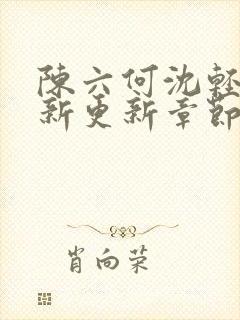 陳六何沈輕
新更新章節
肖向荣